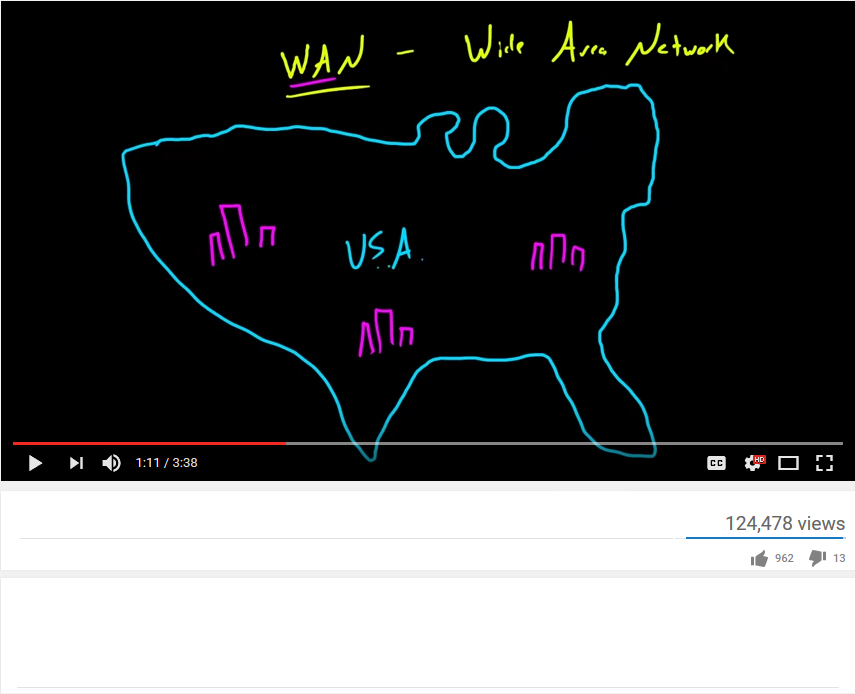 WAN - Wide Area Network
U.S.A.
1:11 / 3:38
CC
HD
124,478 views
962
13